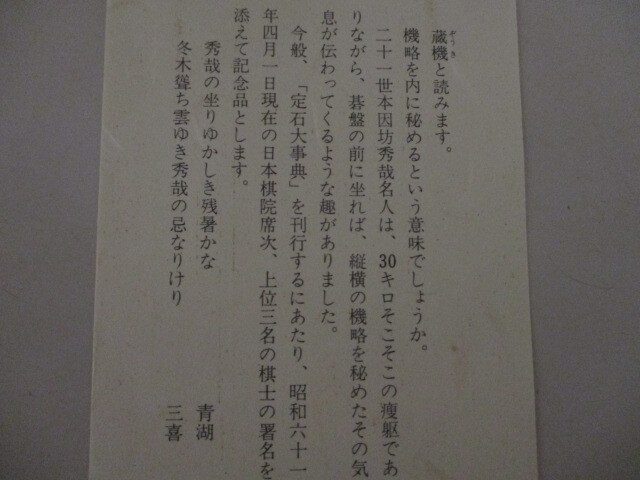 蔵機と読みます。
ぞうき
機略を内に秘めるという意味でしょうか。
二十一世本因坊秀哉名人は、30キロそこそこの痩躯であ
りながら、碁盤の前に坐れば、縦横の機略を秘めたその気
息が伝わってくるような趣がありました。
今般、「定石大事典」を刊行するにあたり、昭和六十一
年四月一日現在の日本棋院席次、上位三名の棋士の署名を
添えて記念品とします。
秀哉の坐りゆかしき残暑かな　青湖
冬木聳ち雲ゆき秀哉の忌なりけり　三喜